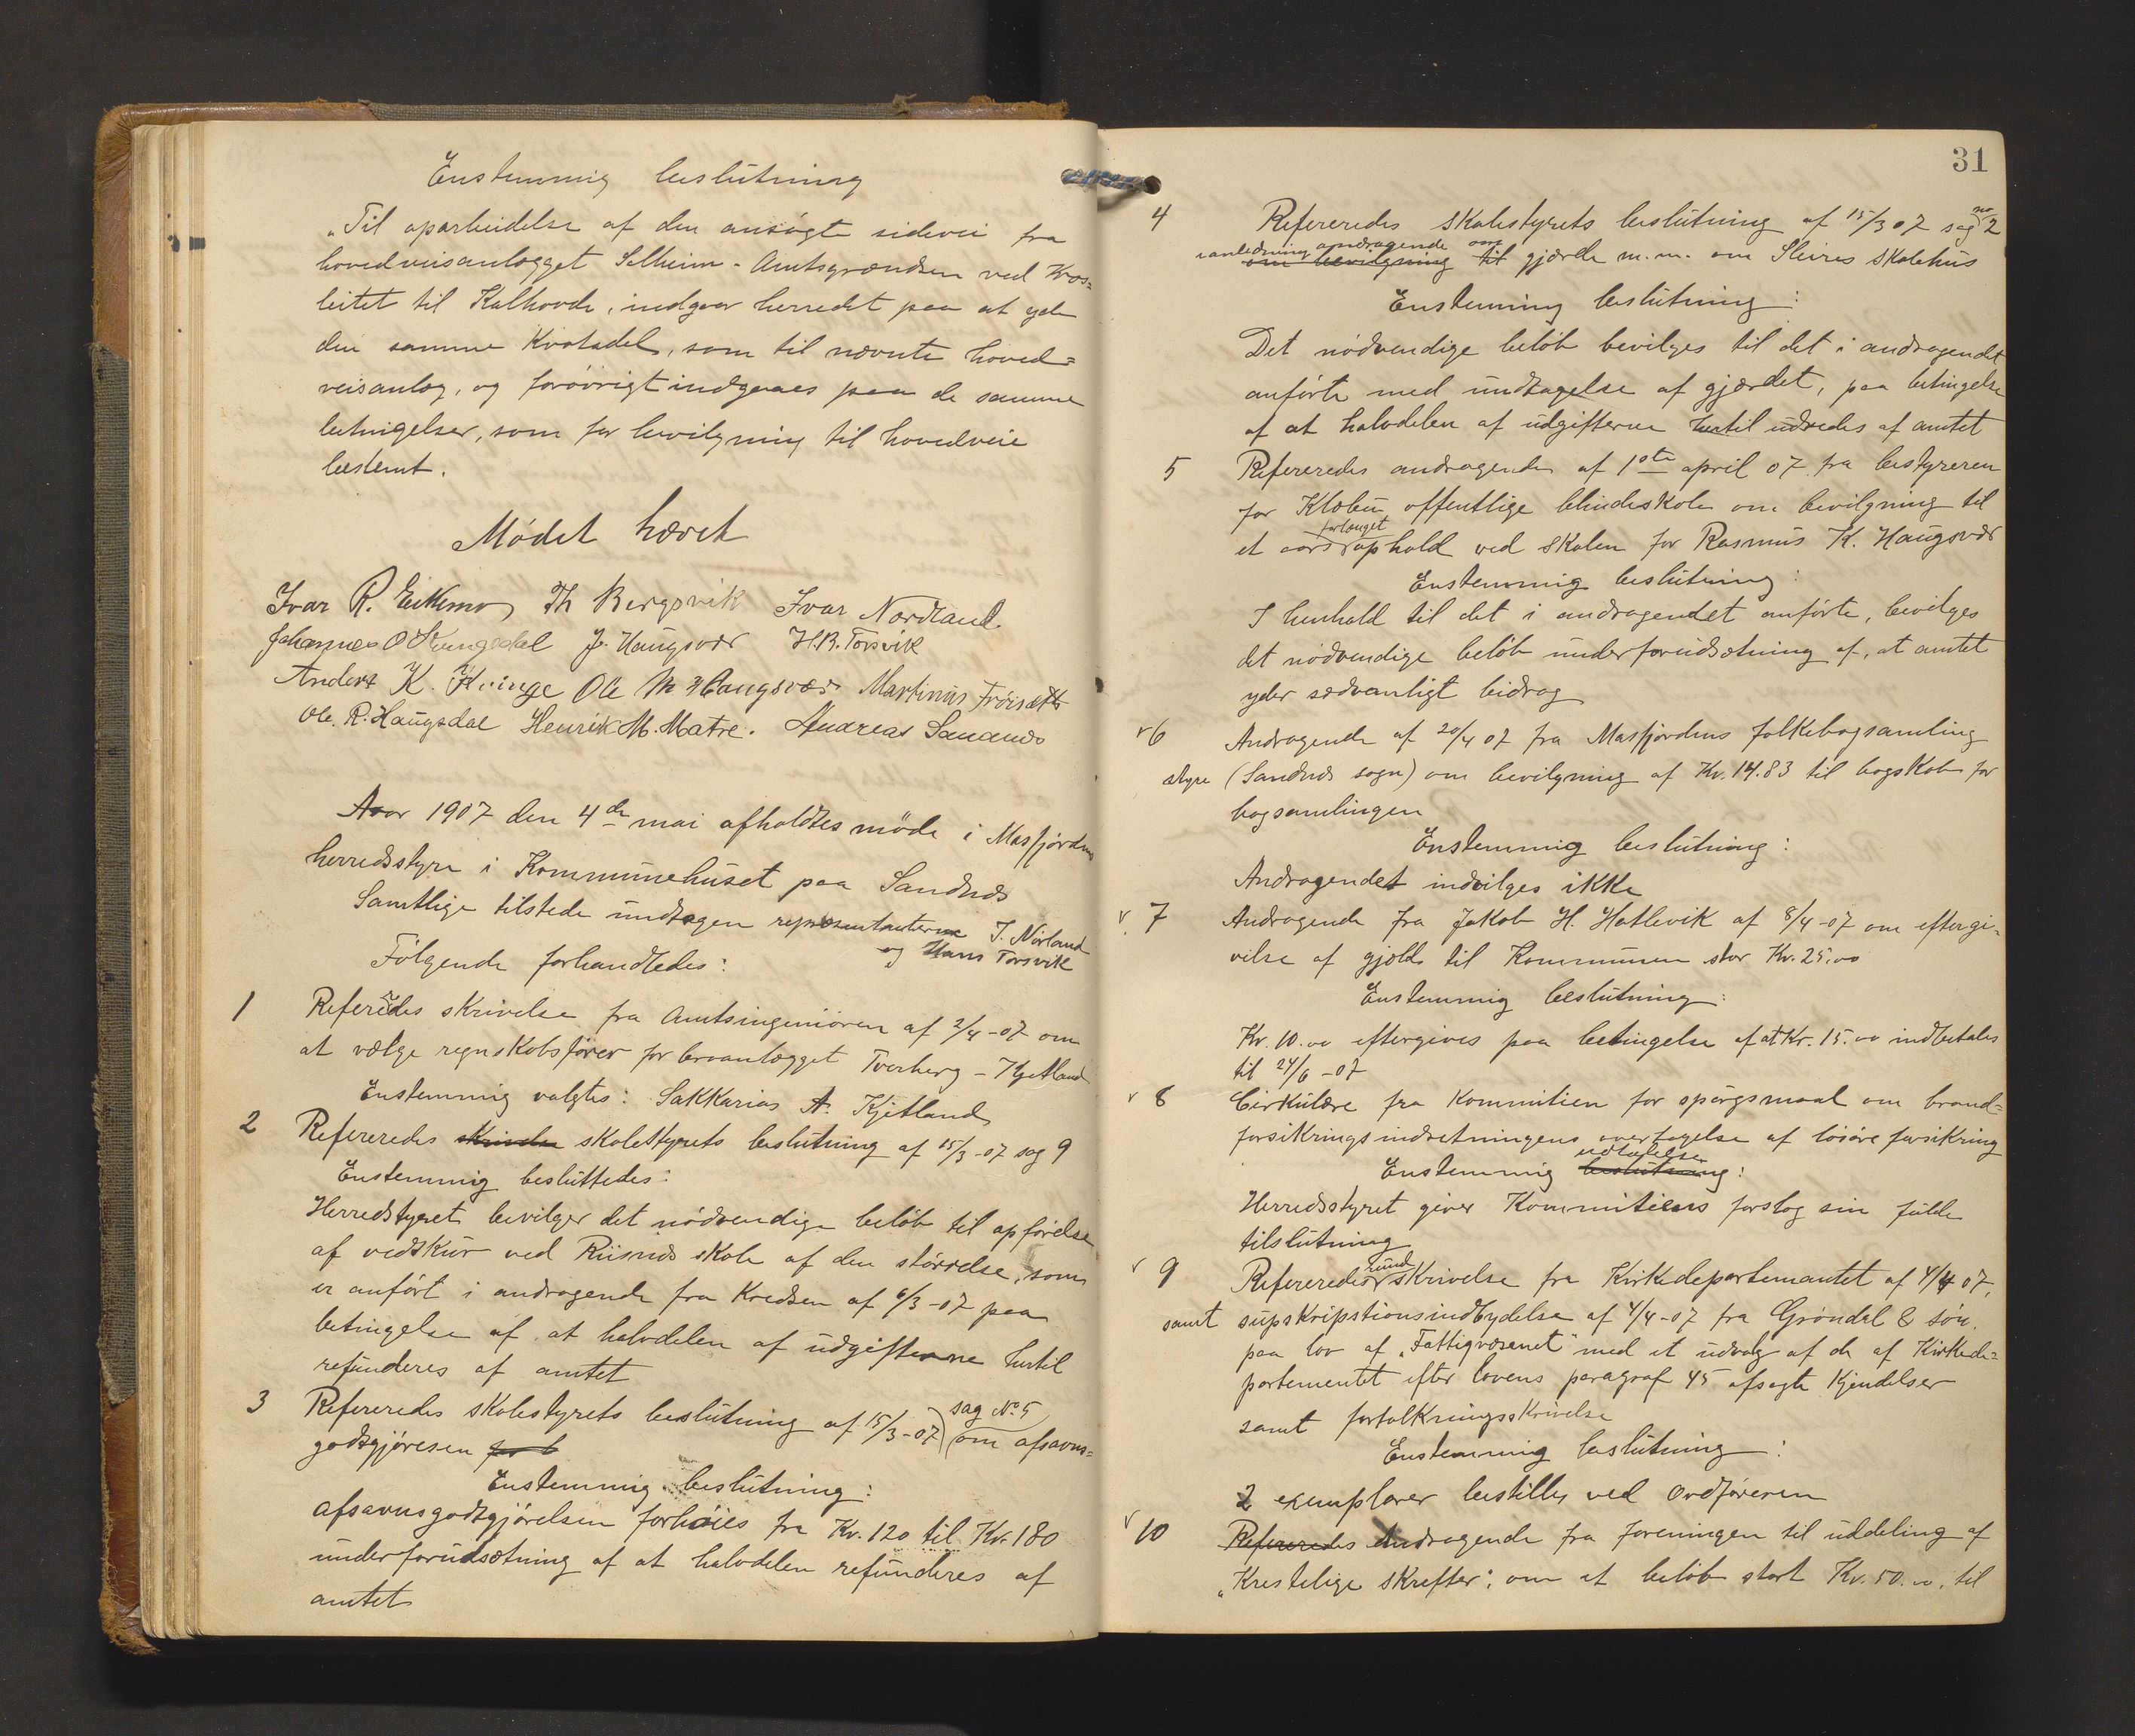 Enstemmig beslutning
„Til oparbeidelse af den ansøgte sidevei fra
hovedveisanlægget Solheim - Amtsgrændsen ved Kros=
leitet til Kalhovde, indgaar herredet paa at yde
den samme Kvotadel, som til nævnte hoved=
veisanlæg, og forøvrigt indgaaes paa de samme
betingelser, som for bevilgning til hovedveie
bestemt.
Mødet hævet
Ivar R. Eikemo Th Bergsvik Ivar Nordland
Johannes O Kvingedal J. Haugsvær H.B. Torsvik
Anders K. Kvinge Ole M Haugsvær Martinus Frøisæth
Ole. R. Haugsdal Henrik M. Matre. Andreas Sananæs
Aar 1907 den 4de mai afholdtes møde i Masfjordens
herredsstyre i Kommunehuset paa Sandnæs
Samtlige tilstede undtagen repræsentanterne I. Nörland
og Hans Torsvik
Følgende forhandledes:
1 Refereredes skrivelse fra Amtsingeniøren af 2/4-07 om
at vælge regnskabsfører for broanlægget Tverberg - Kjetland
Enstemmig valgtes: Sakkarias A. Kjetland
2 Refereredes skrivelse skolestyrets beslutning af 15/3-07 sag 9
Enstemmig besluttedes:
Herredstyret bevilger det nødvendige beløb til opførelse
af vedskur ved Riisnæs skole af den størrelse, som
er anført i andragende fra Kredsen af 6/3-07 paa
betingelse af at halvdelen af udgifterne hertil
refunderes af amtet
3 Refereredes skolestyrets beslutning af 15/3-07 sag No 5
om afsavns=
godtgjøresen for b
Enstemmig beslutning:
afsavnsgodtgjørelsen forhøies fra Kr. 120 til Kr. 180
under forudsætning af at halvdelen refunderes af
amtet
31
4 Refereredes skolestyrets beslutning af 15/3 07 sag no 2
i anledning andragende om
om bevilgning til gjærde m.m. om Sleires skolehus
Enstemmig beslutning:
Det nødvendige beløb bevilges til det i andragendet
anførte med undtagelse af gjærdet, paa betingelse
af at halvdelen af udgifterne hertil udredes af amtet
5 Refereredes andragende af 1ste april 07 fra bestyreren
for Klæbu offentlige blindeskole om bevilgning til
forlænget
et aars ophold ved skolen for Rasmus K. Haugsvær
Enstemmig beslutning:
I henhold til det i andragendet anførte, bevilges
det nødvendige beløb under forudsætning af, at amtet
yder sædvanligt bidrag
6 Andragende af 20/4 07 fra Masfjordens folkebogsamling
styre (Sandnæs sogn) om bevilgning af Kr. 14.83 til bogskab for
bogsamlingen
Enstemmig beslutning:
Andragendet indvilges ikke
7 Andragende fra Jakob H. Hatlevik af 8/4-07 om eftergi=
velse af gjæld til Kommunen stor Kr. 25.00
Enstemmig beslutning:
Kr. 10.00 eftergives paa betingelse af at Kr. 15.00 indbetales
til 24/6-07
8 Cirkulære fra Kommitien for spørgsmaal om brand=
forsikringsindretningens overtagelse af løsøre forsikring
udtalelse
Enstemmig beslutning:
Herredsstyret giver Kommitiens forslag sin fulde
tilslutning
9 Refereredes rundskrivelse fra Kirkedepartemantet af 4/4 07,
samt supskripstionsindbydelse af 4/4-07 fra Grøndal & søn.
paa lov af „Fattigvæsenet" med et udvalg af de af Kirkede=
partementet efter lovens paragraf 45 afsagte Kjendelser
samt fortolkningsskrivelse
Enstemmig beslutning:
2 exemplarer bestilles ved Ordføreren
10 Refereredes Andragende fra foreningen til uddeling af
„Krestelige skrefter", om et beløb stort Kr. 50.00, til